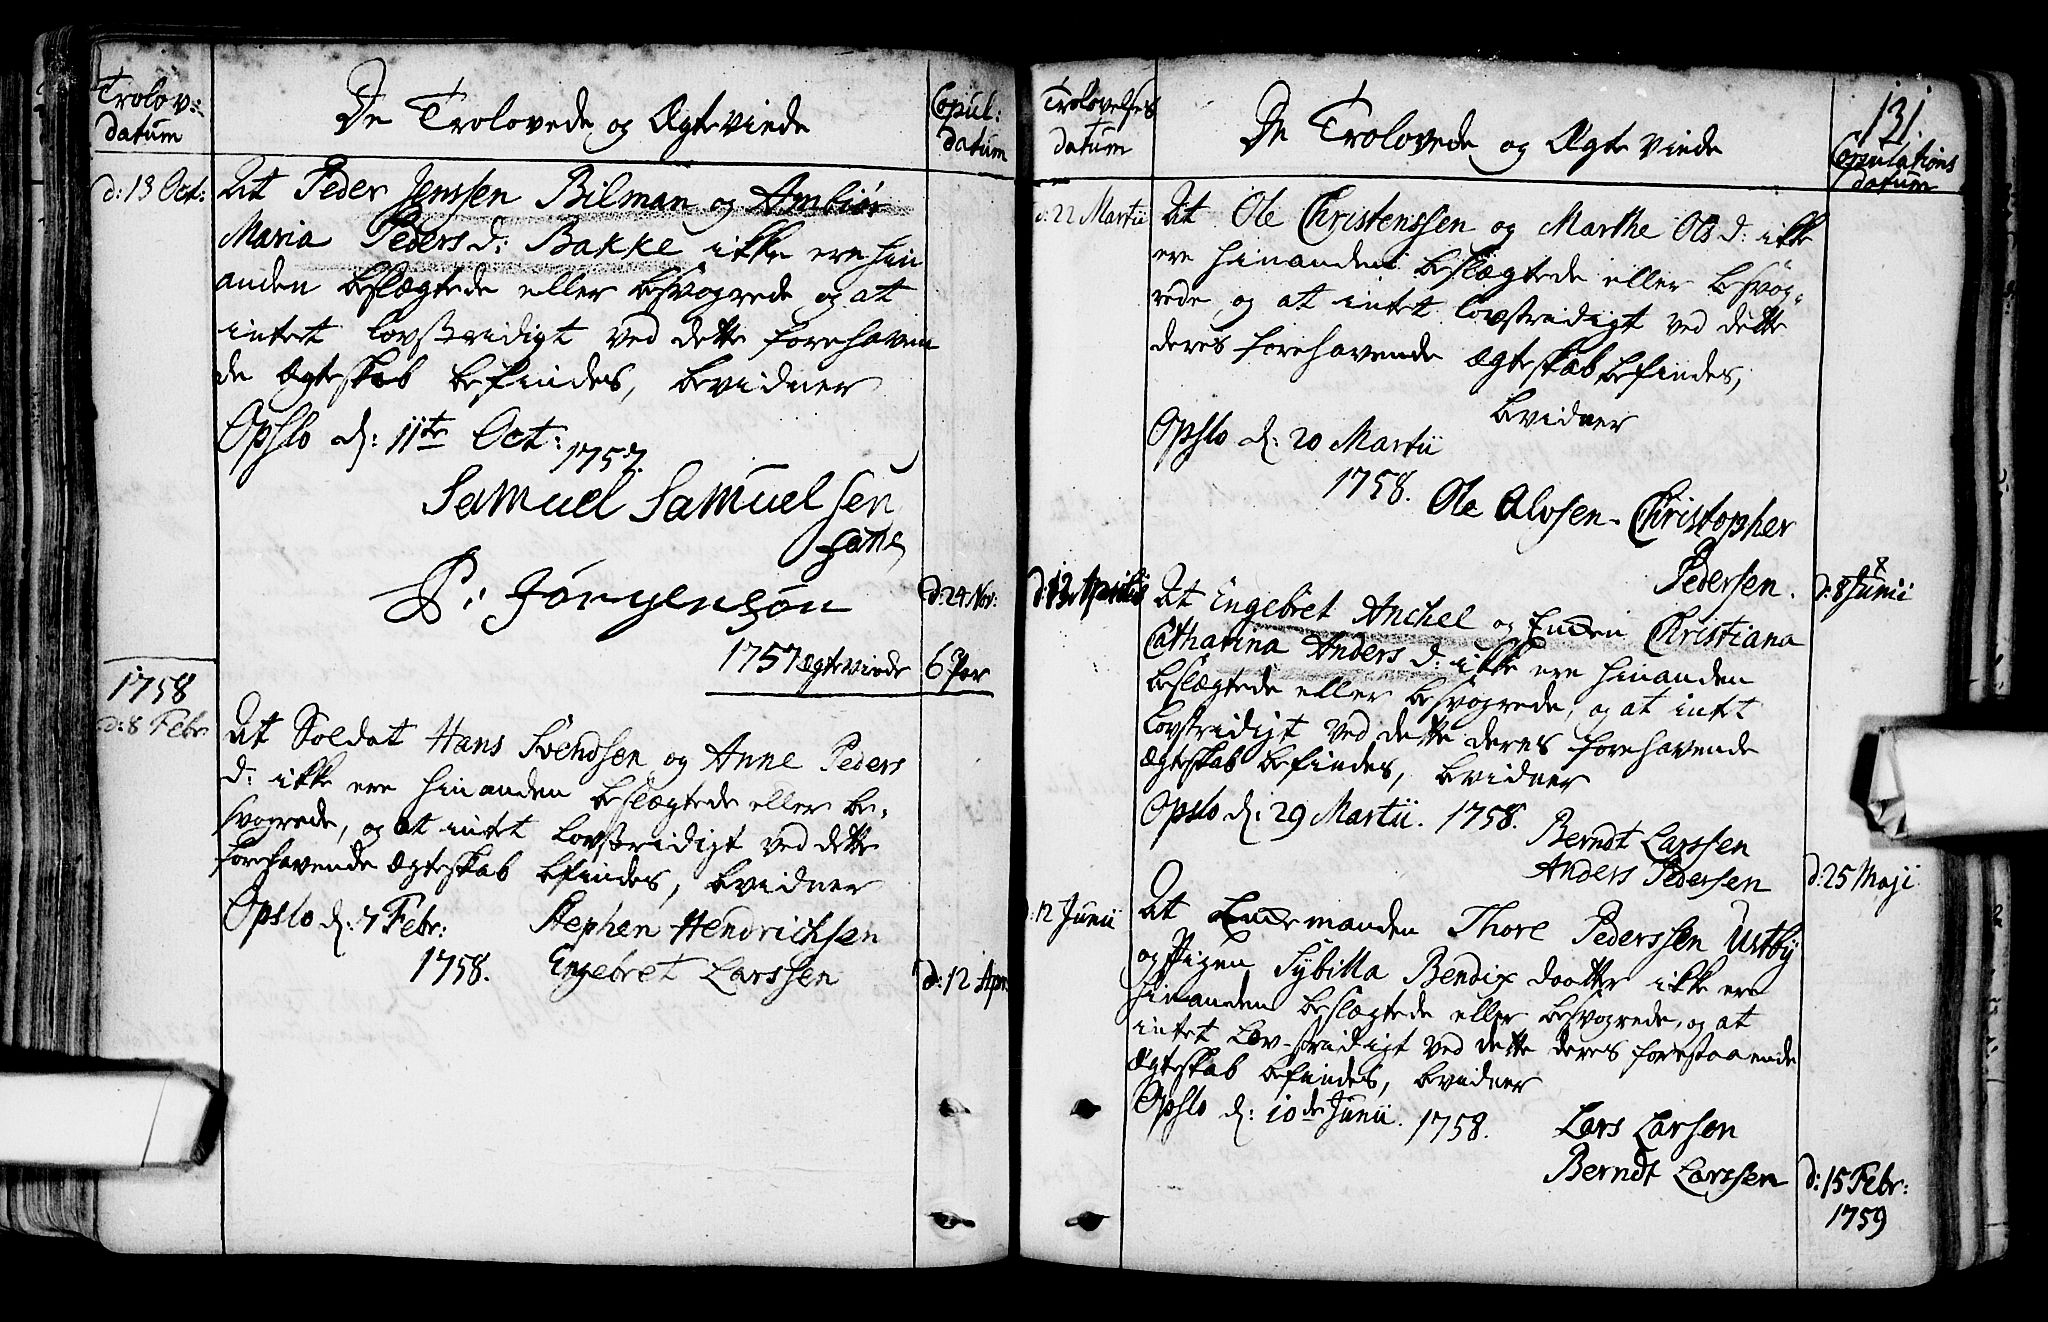 Trolov:
datum
De Trolovede og Ægteviede
Copul:
datum
d: 13 Oct:
At Peder Jenssen Bilman og Ambiør
Maria Peders d: Bakke ikke ere hin
anden beslægtede eller besvogrede og at
intet lovstridigt ved dette forehaven
de Ægteskab befindes, bevidner
Opslo d: 11te Oct: 1757.
Samuel Samuelsen
P: Jørgensøn
d: 24 Nov:
1757 Ægteviede 6 Par
1758
d: 8 Febr.
At Soldat Hans Svendsen og Anne Peders
d: ikke ere hinanden beslægtede eller be-
svogrede, og at intet lovstridigt ved dette
forehavende Ægteskab befindes, bevidner
Opslo d: 7 Febr: Stephen Hendrichsen
1758. Engebret Larssen
d: 12 Apr:
131.
Trolovelses
datum
De Trolovede og Ægteviede
Copulations
datum
d: 22 Martii
At Ole Christenssen og Marthe Ols d: ikke
ere hinanden beslægtede eller besvog-
rede og at intet lovstridigt ved dette
deres forehavende Ægteskab befindes,
bevidner
Opslo d: 20 Martii
1758. Ole Alvsen - Christopher
Pedersen.
d: 8 Junii
d: 13 Aprilis
At Engebret Anchel og Enken Christiana
Catharina Anders d: ikke ere hinanden
beslægtede eller besvogrede, og at intet
lovstridigt ved dette deres forehavende
Ægteskab befindes, bevidner
Opslo d: 29 Martii. 1758.
Berndt Larssen
Anders Pedersen
d: 25 Maji
d: 12 Junii
At Enkemanden Thore Pederssen Ustby
og Pigen Sybilla Bendix daatter ikke ere
hinanden beslægtede eller besvogrede, og at
intet Lov-stridigt ved dette deres forestaaende
Ægteskab befindes, bevidner
Opslo d: 10de Junii. 1758.
Lars Larsen
Berndt Larssen
d: 15 Febr:
1759